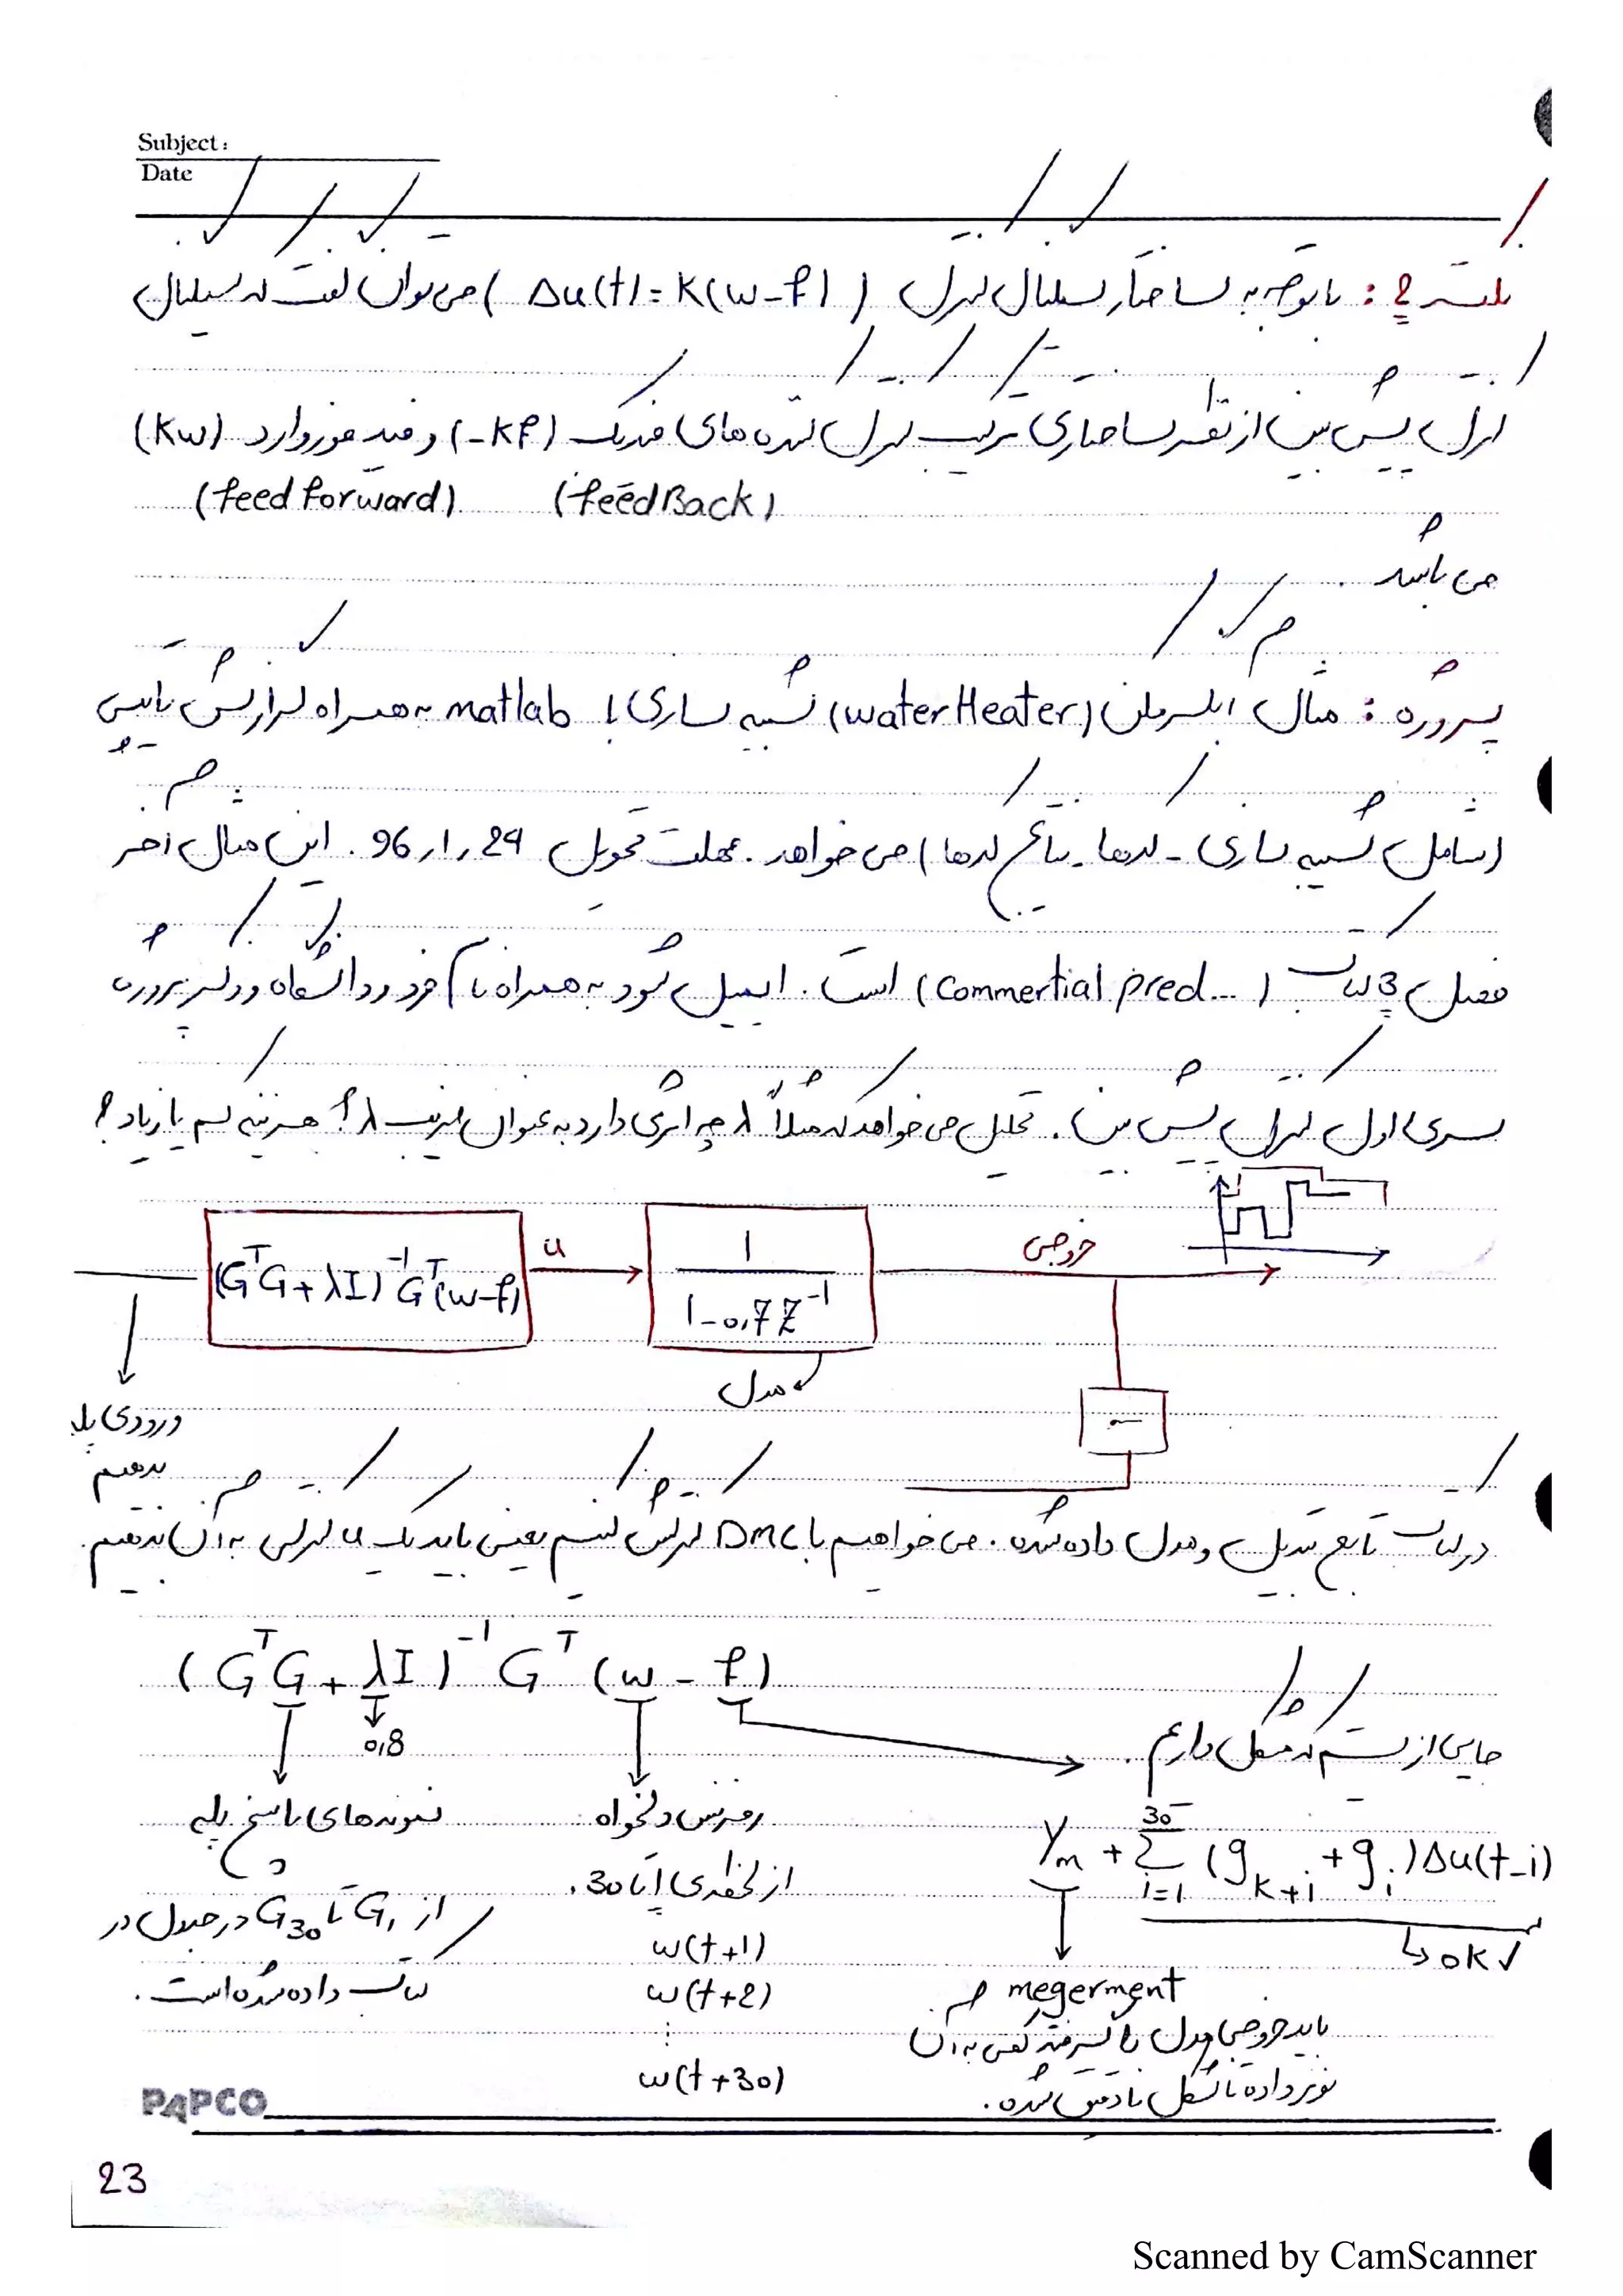 Subject:
Date
نکته 2: با توجه به ساختار سیگنال کنترل (Δu(t) = K(w-f)) می توان گفت که سیگنال
کنترل پیش بین از نقطه نظر ساختاری ترکیب کنترل کننده های فیدبک (-Kf) و فید فوروارد (Kw)
(feed forward) (feedBack)
می باشد.
پروژه: مثال آبگرمکن (water Heater) شبیه سازی با matlab به همراه گزارش تایپی
(شامل شبیه سازی - کدها - نتایج کدها) می خواهد. مهلت تحویل 29 ر 1 ر 96. این مثال آخر
فصل 3 کتاب (commertial pred...) است. ایمیل شود به همراه نام خود و دانشگاه و دکتر پروژه
سری اول کنترل پیش بین. تحلیل می خواهد که مثلاً λ چه اثری دارد به عنوان ضریب λ؟ هزینه کم یا زیاد؟
(GᵀG + λI)⁻¹ Gᵀ(w-f)
u
1
1-0,7 Z⁻¹
خروجی
مدل
ورودی پله
بدهیم
در کتاب تابع تبدیل و مدل داده شده. می خواهیم با DMC کنترلش کنیم یعنی باید یک u کنترلی به آن بدهیم.
(GᵀG + λI)⁻¹ Gᵀ (w - f)
0,8
جایی از سیستم که مشکل داریم.
نمونه های پاسخ پله
از G₁ تا G₃₀ در جدول در
کتاب داده شده است.
رفرنس دلخواه
از لحظه ی 1 تا 30.
w(t+1)
w(t+2)
⋮
w(t+30)
yₘ + Σ³⁰ᵢ₌₁ (g_{k+i} + gᵢ) Δu(t-i)
ok ✓
megerment
باید خروجی مدل را
نویز داده تا شکل
PAPCO
23
Scanned by CamScanner